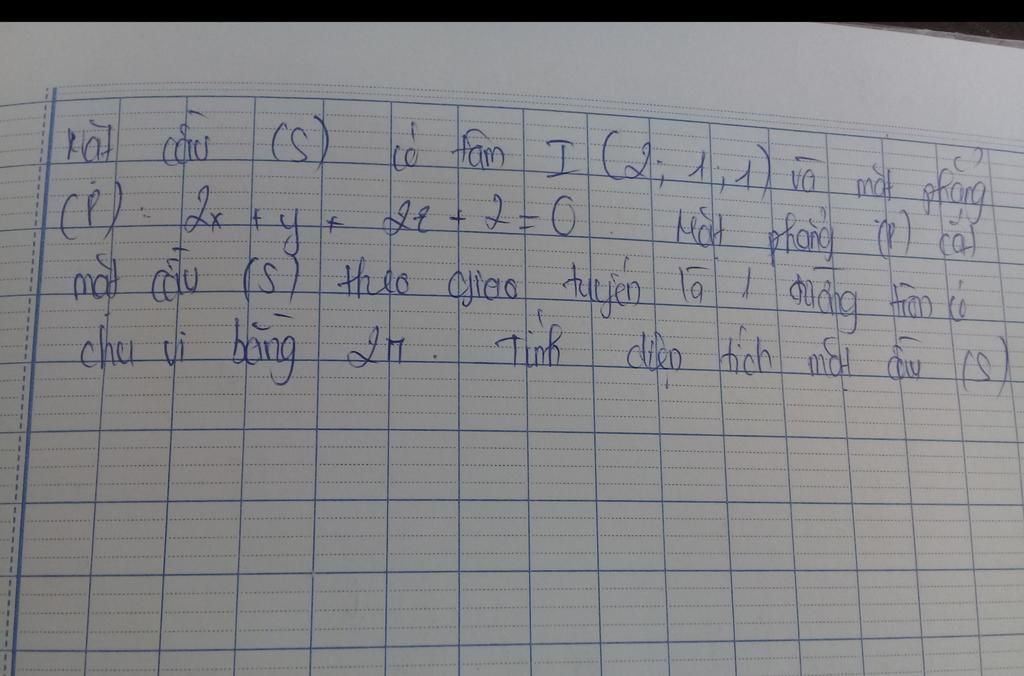 Mặt cầu (S) có tâm I (2; 1; 1) và mặt phẳng
(P): 2x + y + 2z + 2 = 0. Mặt phẳng (P) cắt
mặt cầu (S) theo giao tuyến là 1 đường tròn có
chu vi bằng 2π. Tính diện tích mặt cầu (S)